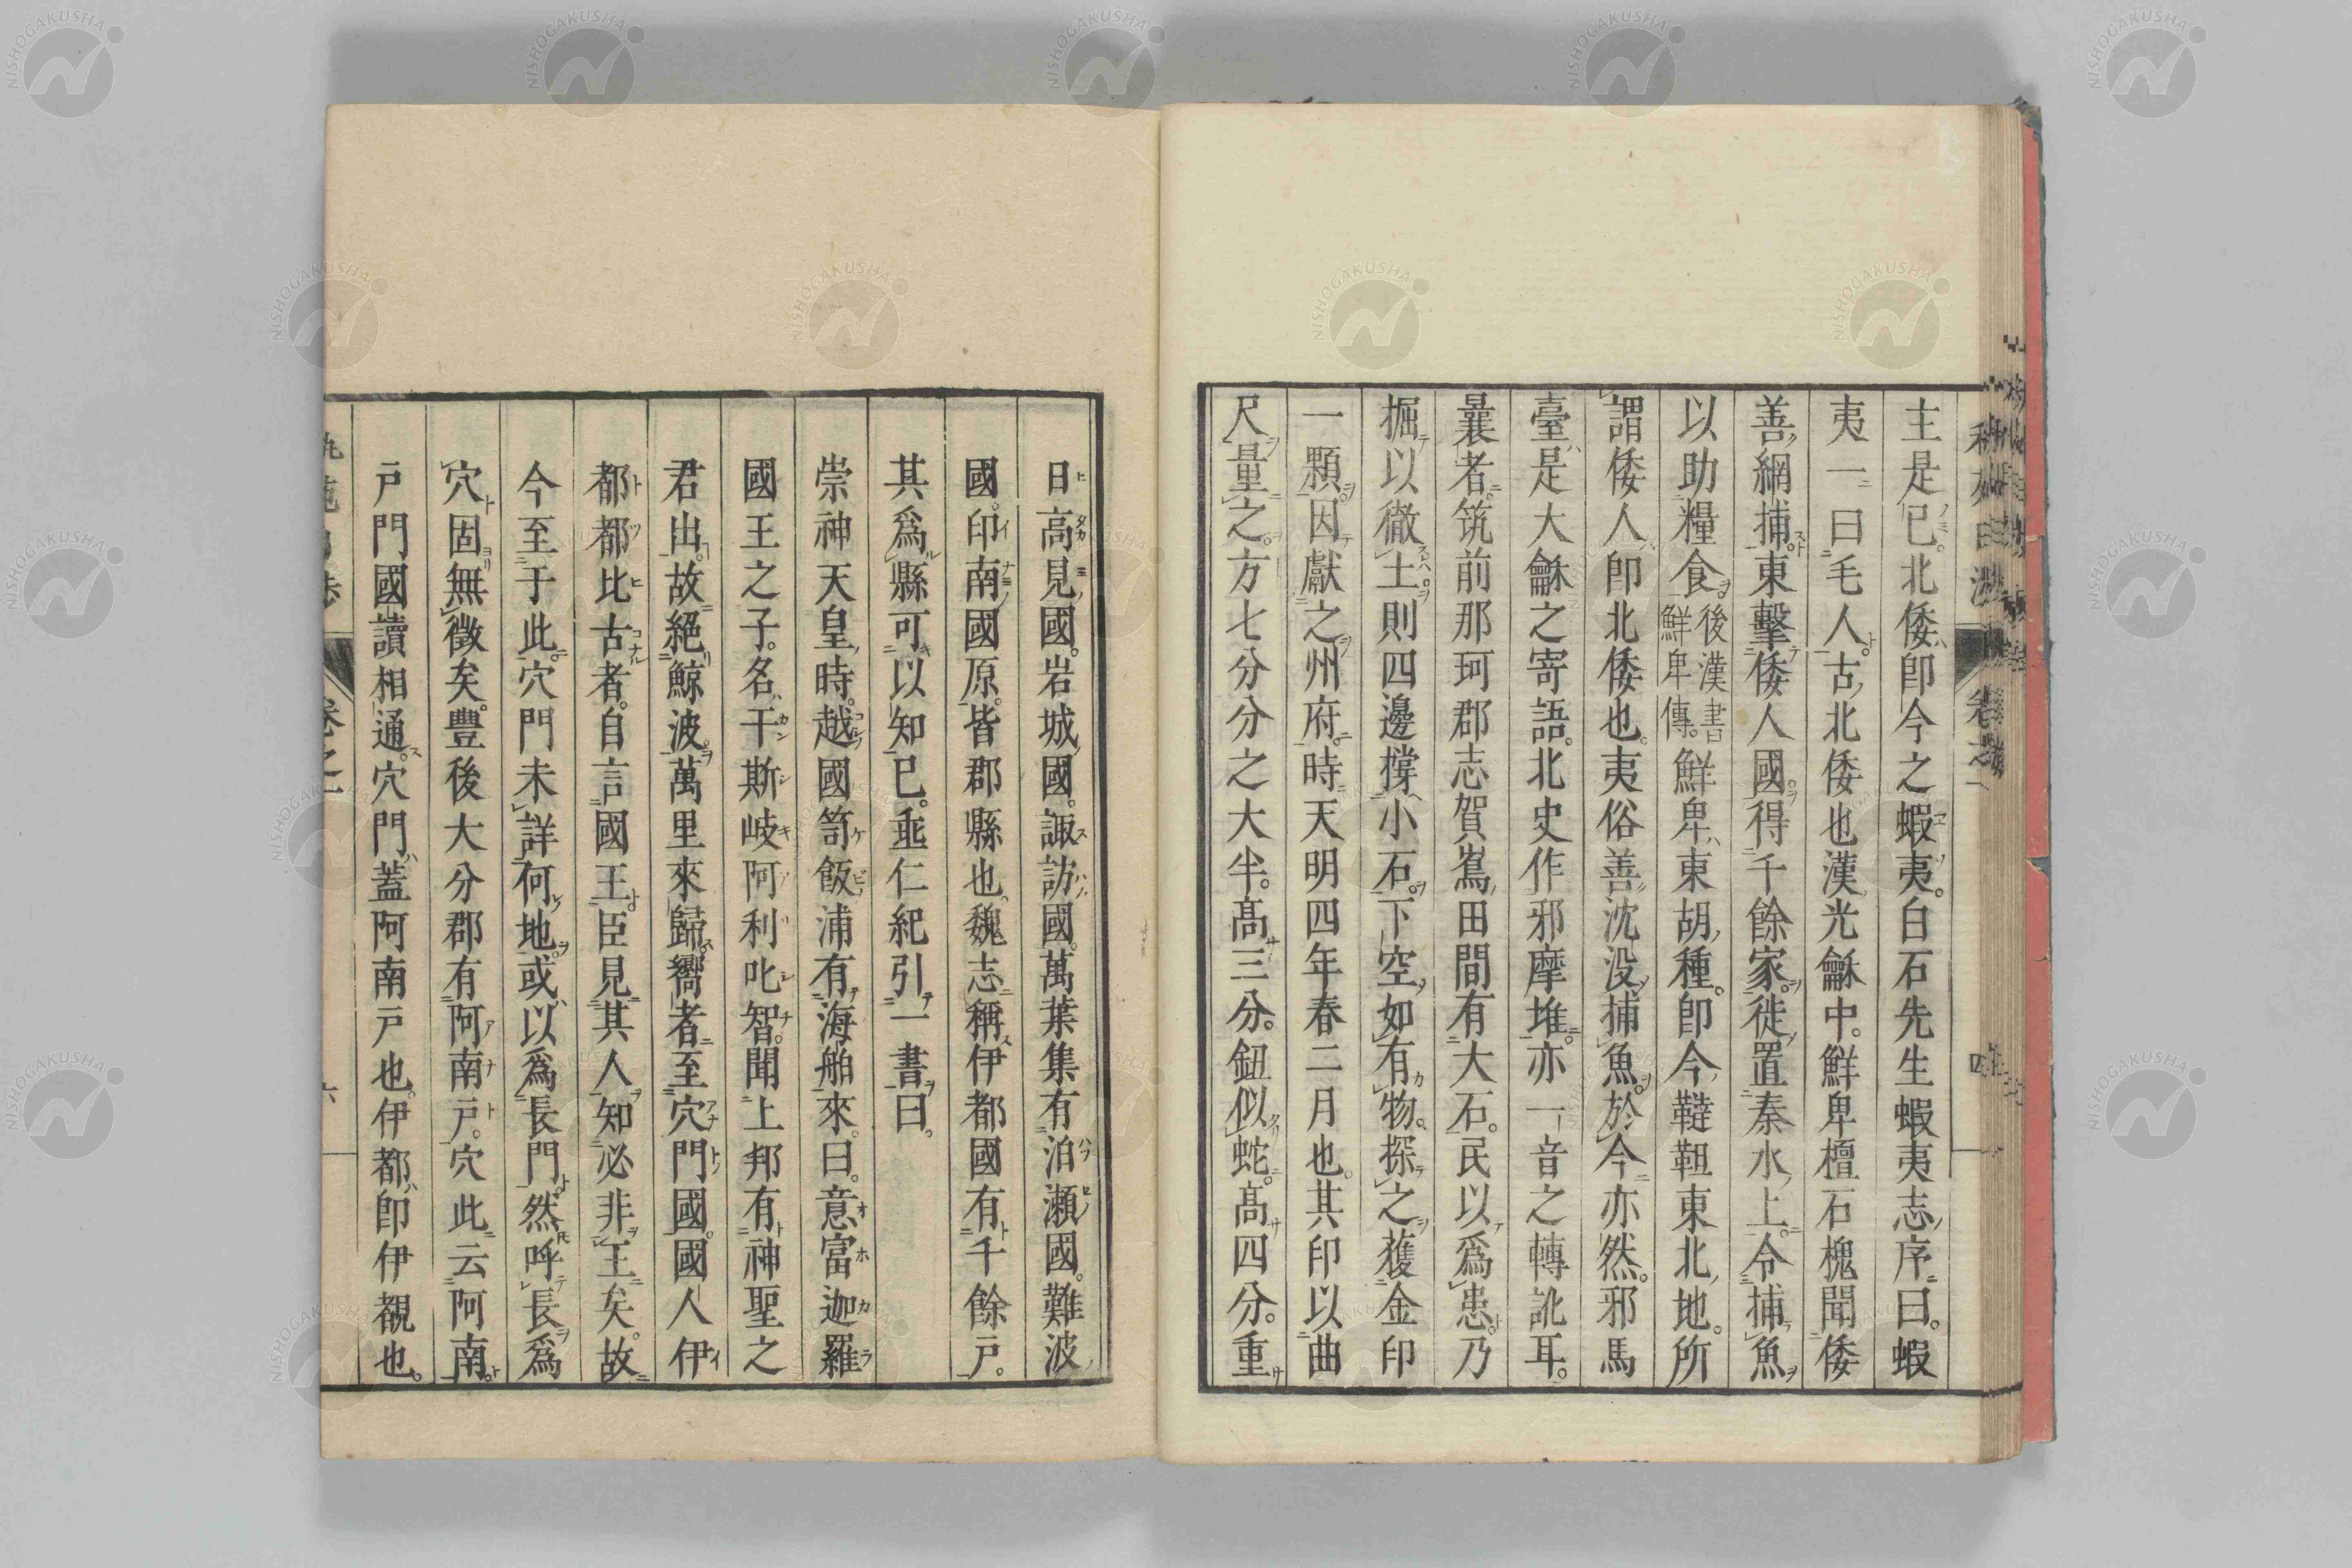 主是已。北倭即今之蝦夷。白石先生蝦夷志序曰。蝦
夷一曰毛人。古北倭也漢光龢中。鮮卑檀石槐聞倭
善網捕。東擊倭人國。得千餘家。徙置秦水上。令捕魚
以助糧食。後漢書鮮卑傳。鮮卑東胡種。即今韃靼東北地。所
謂倭人即北倭也。夷俗善沈没捕魚。於今亦然。邪馬
臺是大龢之寄語。北史作邪摩堆。亦一音之轉訛耳。
曩者。筑前那珂郡志賀嶌田間有大石。民以爲患。乃
掘以徹土。則四邊撐小石。下空如有物。探之獲金印
一顆。因獻之州府。時天明四年春二月也。其印以曲
尺量之。方七分分之大半。髙三分。鈕似蛇。髙四分。重
日高見國。岩城國。諏訪國。萬葉集有泊瀬國。難波
國。印南國原。皆郡縣也。魏志稱伊都國有千餘戸。
其爲縣可以知已。垂仁紀引一書曰。
崇神天皇時。越國笥飯浦有海舶來。曰。意富迦羅
國王之子。名干斯岐阿利叱智。聞上邦有神聖之
君出。故絕鯨波萬里來歸嚮者。至穴門國。國人伊
都都比古者。自言國王。臣見其人知必非王矣。故
今至于此。穴門未詳何地。或以爲長門。然呼長爲
穴固無徵矣。豊後大分郡有阿南戸。穴此云阿南。
戸門國讀相通。穴門蓋阿南戸也。伊都即伊覩也。
卷之一
六
NISHOGAKUSHA